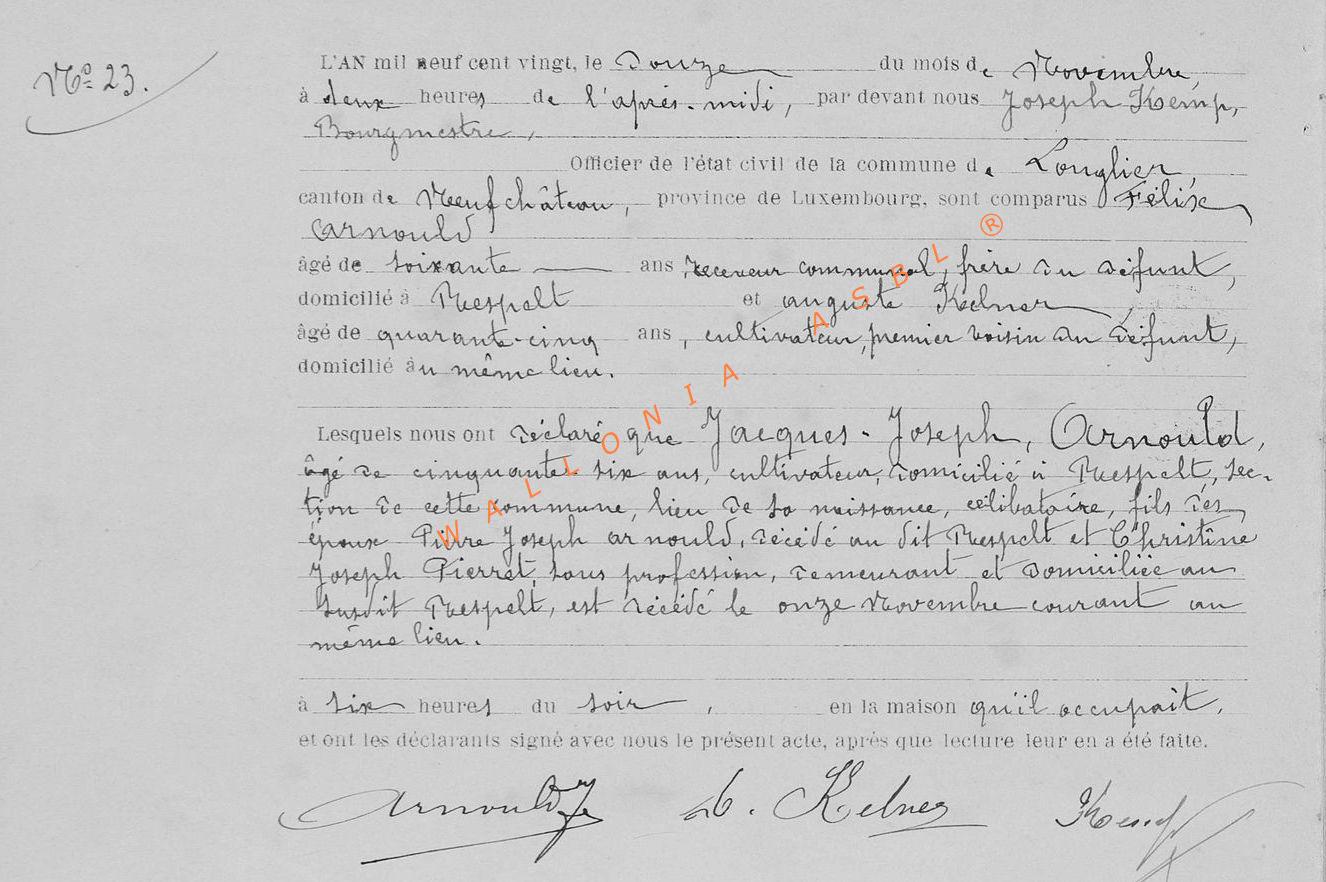 No 23.
L'AN mil neuf cent vingt, le douze du mois de Novembre,
à deux heures de l'après-midi, par devant nous Joseph Kemp,
Bourgmestre,
Officier de l'état civil de la commune de Longlier,
canton de Neufchâteau, province de Luxembourg, sont comparus Félix
Arnould
âgé de soixante ans, receveur communal, frère du défunt,
domicilié à Respelt et Auguste Kelner,
âgé de quarante-cinq ans, cultivateur, premier voisin du défunt,
domicilié au même lieu.
Lesquels nous ont déclaré que Jacques-Joseph, Arnould,
âgé de cinquante six ans, cultivateur, domicilié à Respelt, sec-
tion de cette commune, lieu de sa naissance, célibataire, fils des
époux Pierre Joseph Arnould, décédé au dit Respelt et Christine
Joseph Pierret, sans profession, demeurant et domiciliée au
susdit Respelt, est décédé le onze Novembre courant au
même lieu.
à six heures du soir, en la maison qu'il occupait.
et ont les déclarants signé avec nous le présent acte, après que lecture leur en a été faite.
Arnould F. A. Kelner Kemp
WALLONIA ASBL ®